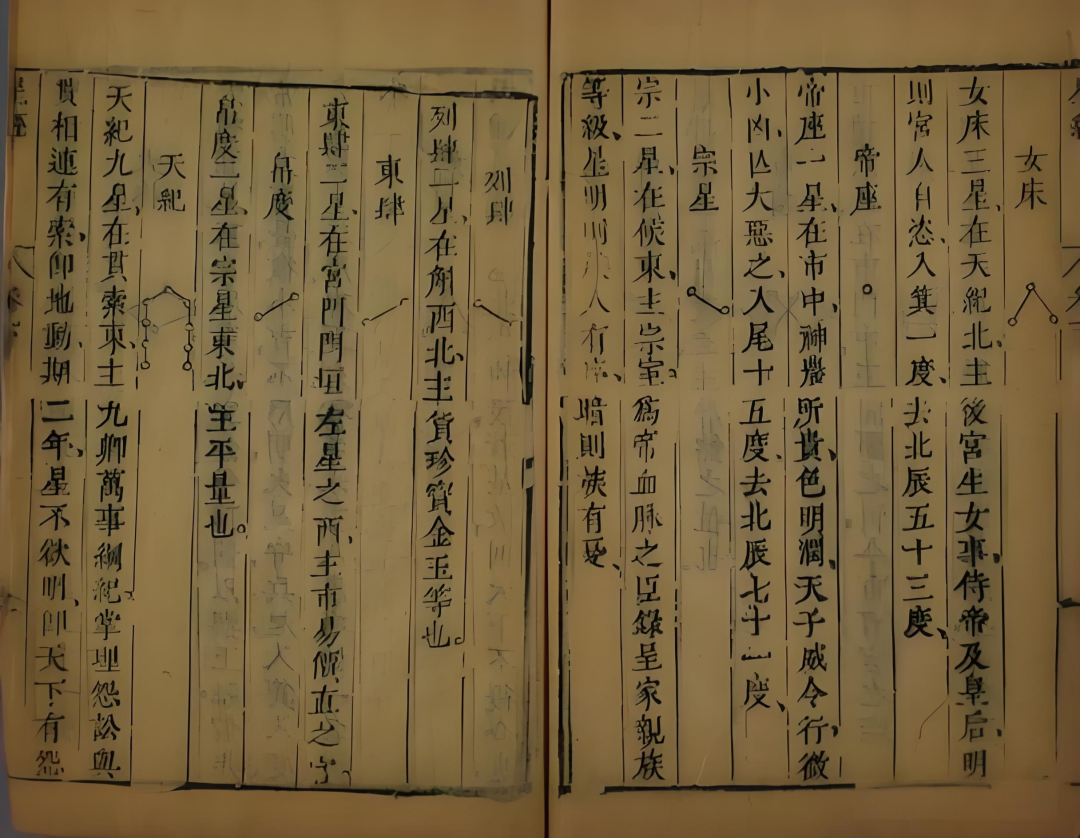 女床
女床三星、在天紀北、主後宮生女事、侍帝及皇后、明
則宮人自恣、入箕一度、去北辰五十三度、
帝座
帝座一星、在市中、神農所貴、色明潤、天子威令行、微
小凶亡大惡之、入尾十五度、去北辰七十一度、
宗星
宗二星、在候東、主宗室。為帝血脉之臣錄呈家親族
等級、星明則 人有 、暗則族有憂、
列肆
列肆二星、在斛西北、主貨珍寶金玉等也。
東肆
東肆二星、在宮門門垣左星之西、主市易價直之
帛度
帛度二星、在宗星東北、主平量也。
天紀
天紀九星、在貫索東、主九卿萬事綱紀掌理怨訟與
貫相連有索、即地動期二年、星不欲明、即天下有怨
星經